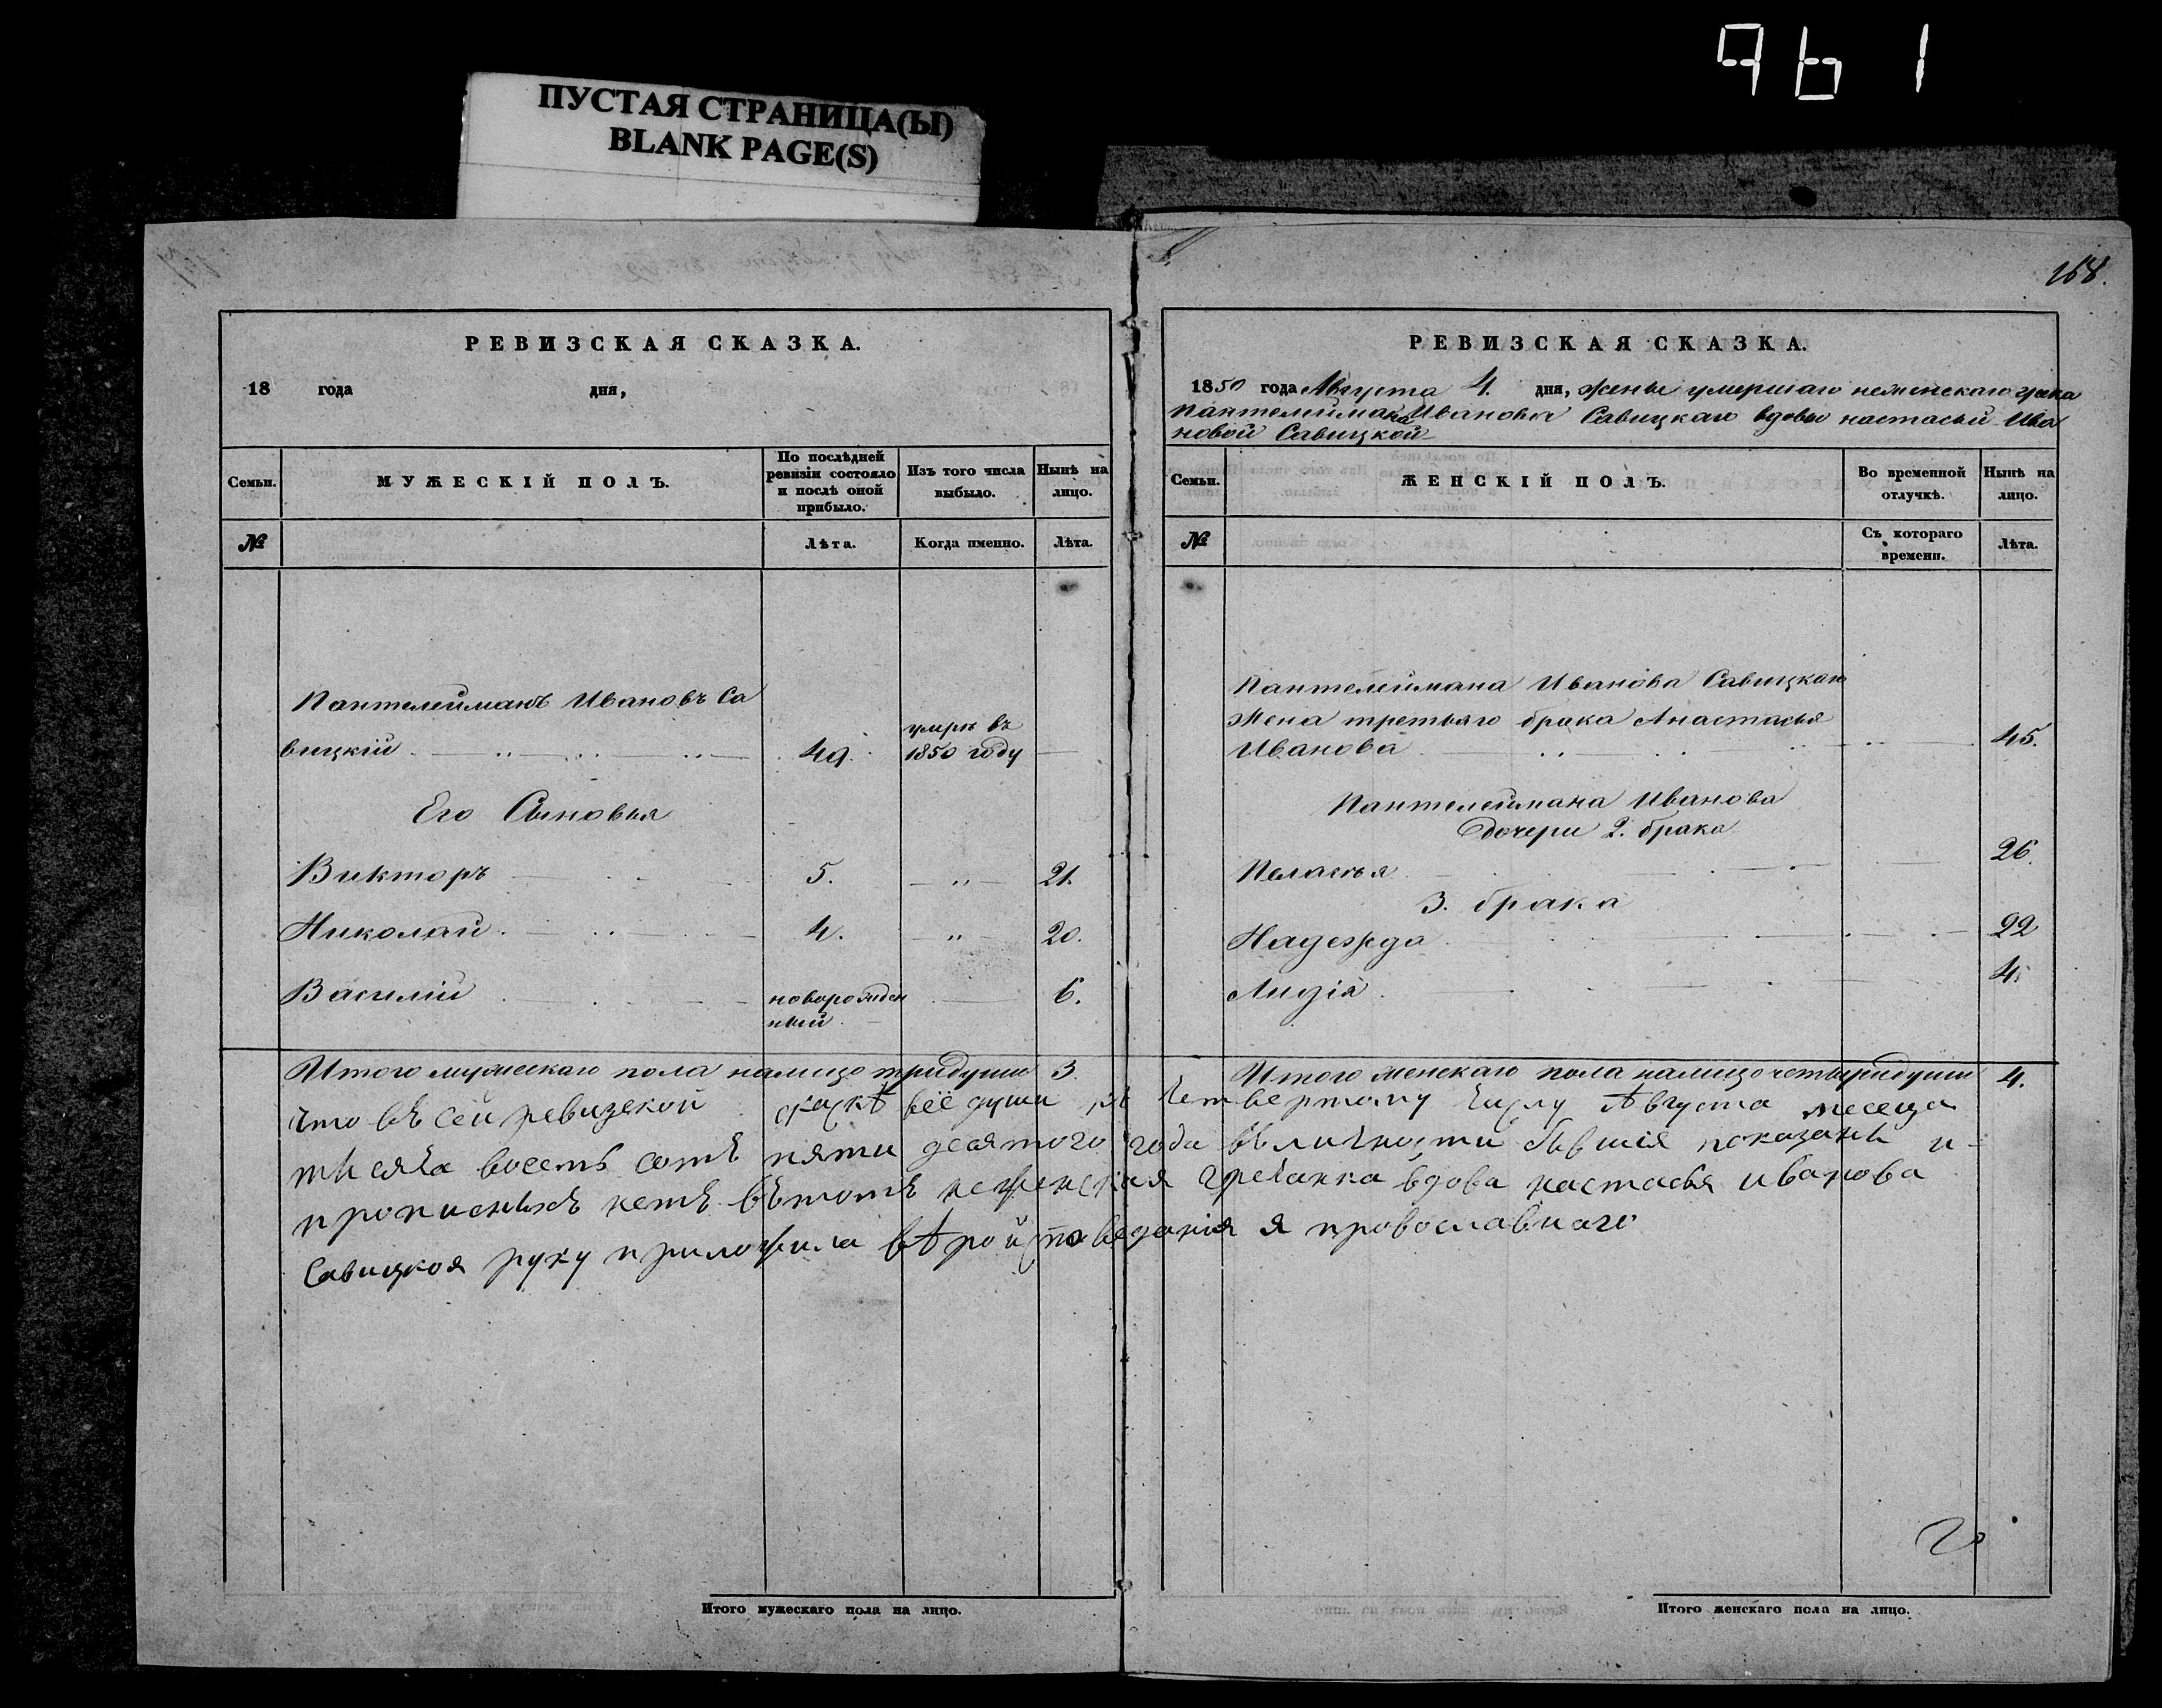 961
ПУСТАЯ СТРАНИЦА(Ы)
BLANK PAGE(S)
РЕВИЗСКАЯ СКАЗКА.
18 года дня,
Семьи.
МУЖЕСКІЙ ПОЛЪ.
По послѣдней
ревизіи состояло
и послѣ оной
прибыло.
Изъ того числа
выбыло.
Нынѣ на
лицо.
№
Лѣта.
Когда именно.
Лѣта.
Пантелеймонъ Ивановъ Са
вицкій 49. умръ въ
1850 году
Его Сыновья
Викторъ 5. " 21.
Николай 4. " 20.
Василій новорожден
ный 6.
Итого мужескаго пола налицо три души 3.
168.
РЕВИЗСКАЯ СКАЗКА.
1850 года Августа 4. дня, жены умершаго неженскаго грека
Пантелеймона Иванова Савицкаго вдовы настасьи Ива
новой Савицкой
Семьи.
ЖЕНСКІЙ ПОЛЪ.
Во временной
отлучкѣ.
Нынѣ на
лицо.
№
Съ котораго
времени.
Лѣта.
Пантелеймана Иванова Савицкаго
Жена третьяго брака Анастасья
Иванова 45.
Пантелеймана Иванова
дочери 2. брака
Пелагея 26.
3. брака
Надежда 22
Лидія 4.
Итого женскаго пола налицо четыри души 4.
что въ сей ревизской скаскѣ все души къ четвертому числу Августа месеца
тисяча восемь сотъ пяти десятого года въ личности бывшія показаны и
прописныхъ нетъ въ томъ неженская гречанка вдова настасья иванова
Савицкоя руку приложила вѣрой споведания я провославнаго
Итого мужескаго пола на лицо.
Итого женскаго пола на лицо.